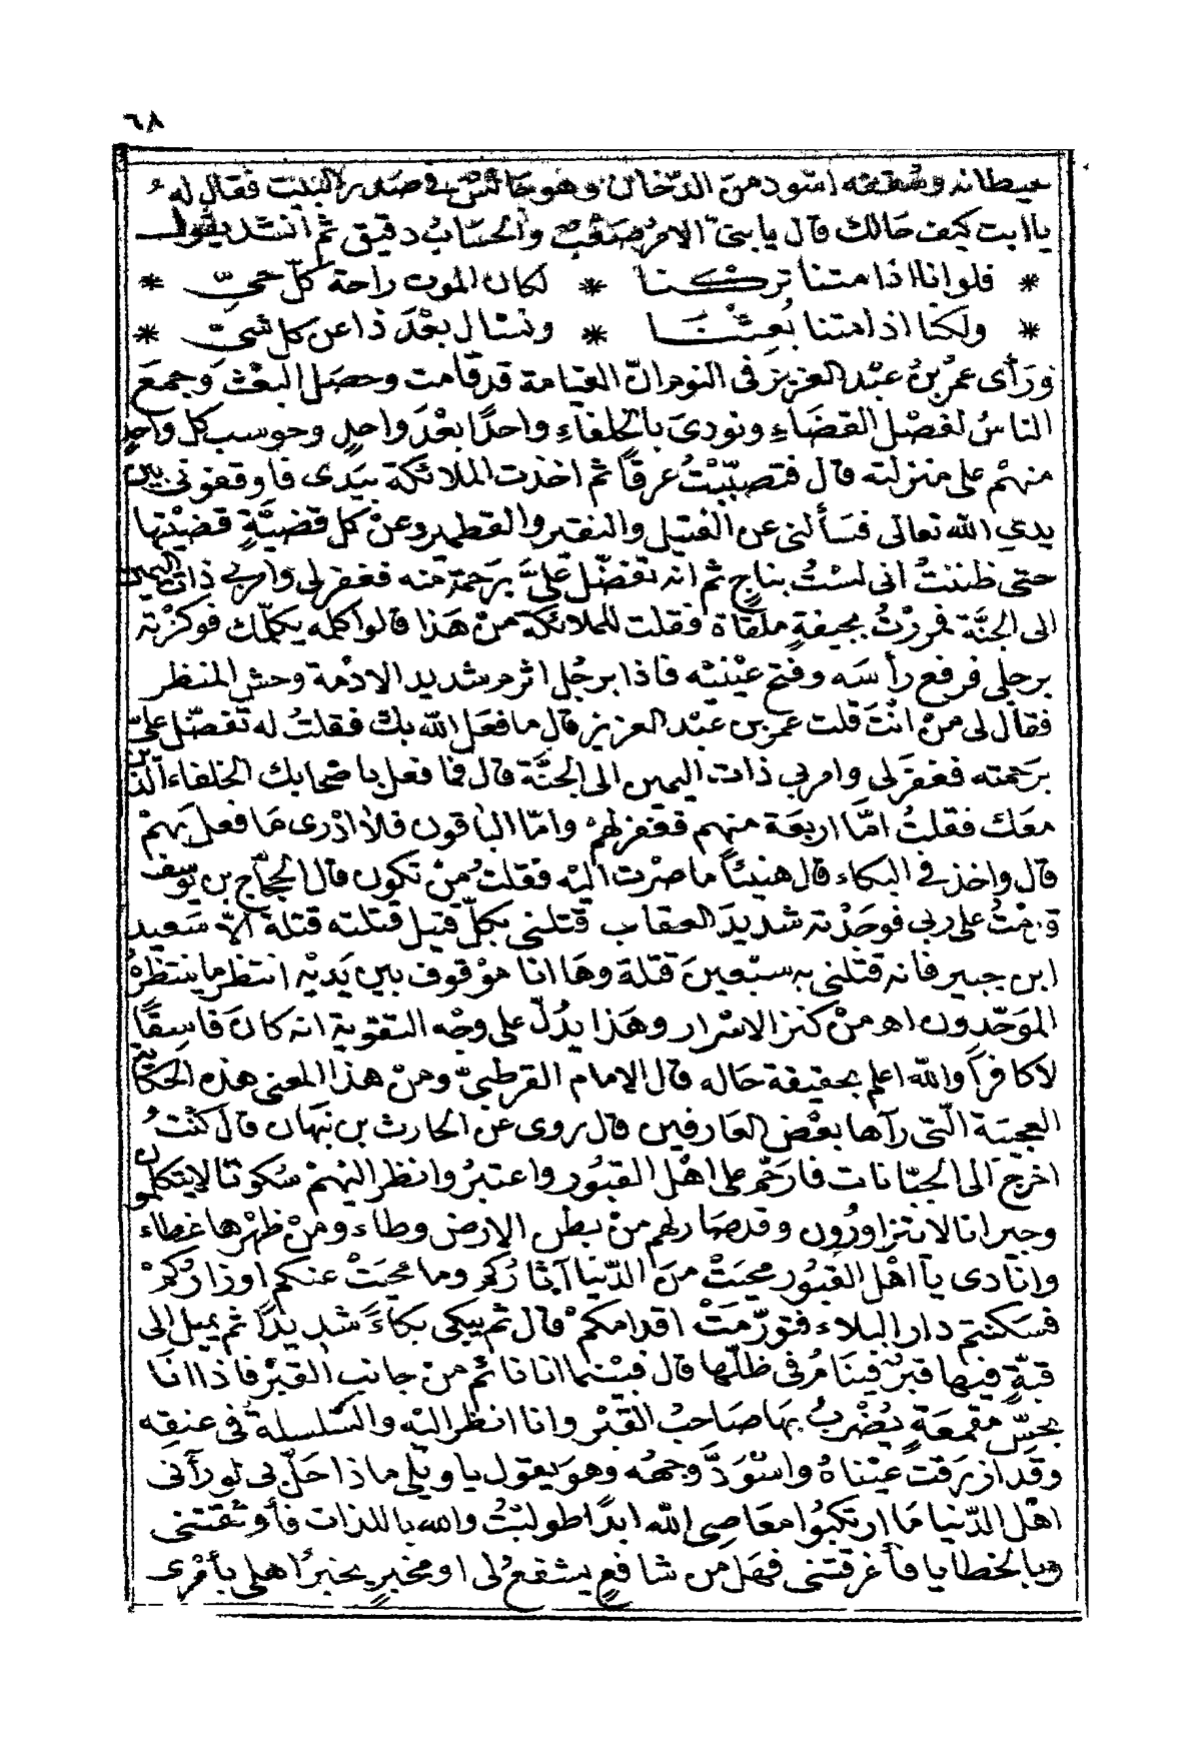 ٦٨
حيطانه وسقفه اسود من الدخان وهو جالس فى صدر البيت فقال له
ياابت كيف حالك قال يا بنى الامر صعب والحساب دقيق ثم انشد يقول
* فلو انا اذا متنا تركنا * لكان الموت راحة كل حىّ *
* ولكنا اذا متنا بُعثنا * ونسال بعْدَ ذا عن كل شىّ *
وَرَأى عمر بنُ عبْد العزيز فى النوم انّ القيامة قد قامت وحصل البعْث وجمعَ
الناسُ لفصْل القضاءِ ونودىَ بالخلفاءِ واحدًا بعْدَ واحدٍ وحوسب كل واحدٍ
منهمْ على منزلته قال فتصبّبْتُ عرقًا ثم اخذت الملائكة بيَدى فاوقفونى بين
يدي الله تعالى فسَألنى عن الفتيل والنقير والقطمير وعنْ كل قضيّةٍ قضيْتها
حتى ظننتُ انى لسْتُ بناجٍ ثم انه تفضّل علىَّ برَحمة منه فغفر لى وامر بى ذات اليمين
الى الجنَّة فمررْتُ بجيفةٍ ملقاة فقلت للملائكة منْ هَذا قالوا كلمه يكلّمك فوكزْته
برجلى فرفع رأسَه وفتح عيْنيْه فاذا برجُل اثرم شديد الادْمة وحش المنظر
فقال لى منْ انْتَ قلت عمر بن عبْد العزيز قال ما فعَل الله بك فقلتُ له تفضّل علىّ
برَحمته فغفرَ لى وامر بى ذات اليمين الى الجنَّة قال فما فعل باصْحابك الخلفاء الذين
معَك فقلتُ امَّا اربَعَة منهم فغفرَ لهمْ وامّا الباقون فلا ادْرى مَا فعل بهمْ
قال واخذ فى البكاء قال هنيئًا ما صرْت اليْه فقلتُ منْ تكون قال الحجّاج بن يوسف
قدمْتُ على ربى فوجَدْته شديدَ العقاب قتلنى بكلّ قتيل قتلته قتلة الاّ سَعيد
ابن جبير فانه قتلنى به سبْعينَ قتلة وهَا انا موْقوف بين يَديْه انتظر ما ينتظرهُ
الموَحّدون اه منْ كنز الاسْرار وهَذا يدُلّ على وجْه التقوية انه كانَ فاسِقًا
لا كافرًا والله اعلم بحقيقة حَاله قال الامام القرطبىّ ومنْ هذا المعنى هذه الحكاية
العجيبَة الّتى رآها بعْض العَارفين قال روى عن الحارث بن نبهان قال كنْتُ
اخرجُ الى الجبّانات فارحّم على اهْل القبُور واعتبرُ وانظر اليْهمْ سُكوتًا لا يتكلمون
وجيرانا لا يتزاورُون وقد صَار لهم منْ بطن الارض وطاء ومنْ ظهْرها غطاء
وانَادى يآ اهْل القبُور محيَتْ منَ الدّنيا آثارُكم وما محيَتْ عنكم اوزارُكمْ
فسَكنتم دار البلاء فتورّمَتْ اقدامكمْ قال ثم يبكى بكاءً شديدًا ثم يميل الى
قبّةٍ فيها قبْرٌ فينَامُ فى ظلّها قال فبيْنما انا نائم منْ جانب القبْر فاذا انا
بحسّ مقمعَةٍ يُضْربُ بهَا صَاحبُ القبْر وانا انظر اليْه والسّلسلةُ فى عنقه
وقد ازرَقت عيْناهُ واسْوَدَّ وجهُه وهو يقول ياويْلى ماذا حَلّ بى لو رآنى
اهْل الدّنيا مَا ارتكبُوا معَاصى الله ابدًا طولبْتُ والله باللذات فأوْثقتنى
وبالخطايا فأغرقتنى فهَل من شافعٍ يشفعُ لى او مخبرٍ يخبرُ اهلى بأمْرى